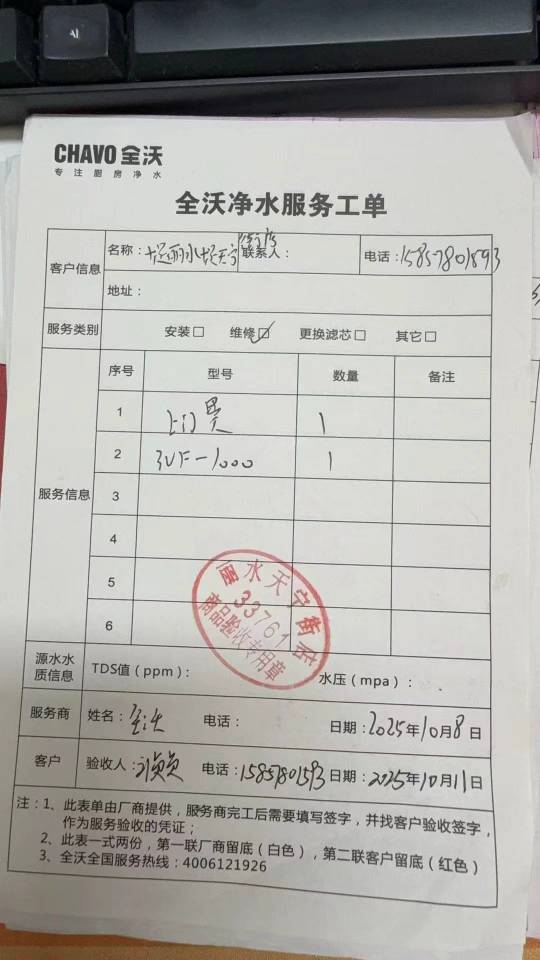 CHAVO 全沃
专注厨房净水
全沃净水服务工单
客户信息
名称: 丽水 天宁街店
联系人:
电话: 15857801593
地址:
服务类别
安装□ 维修☑ 更换滤芯□ 其它□
服务信息
序号 型号 数量 备注
1 上门费 1
2 3VF-1000 1
3
4
5
6
丽水天宁街店
33761
商品验收专用章
源水水质信息
TDS值（ppm）: 水压（mpa）:
服务商
姓名: 全沃 电话: 日期: 2025年10月8日
客户
验收人: 电话: 15857801593 日期: 2025年10月11日
注: 1、此表单由厂商提供，服务商完工后需要填写签字，并找客户验收签字，
作为服务验收的凭证；
2、此表一式两份，第一联厂商留底（白色），第二联客户留底（红色）
3、全沃全国服务热线: 4006121926